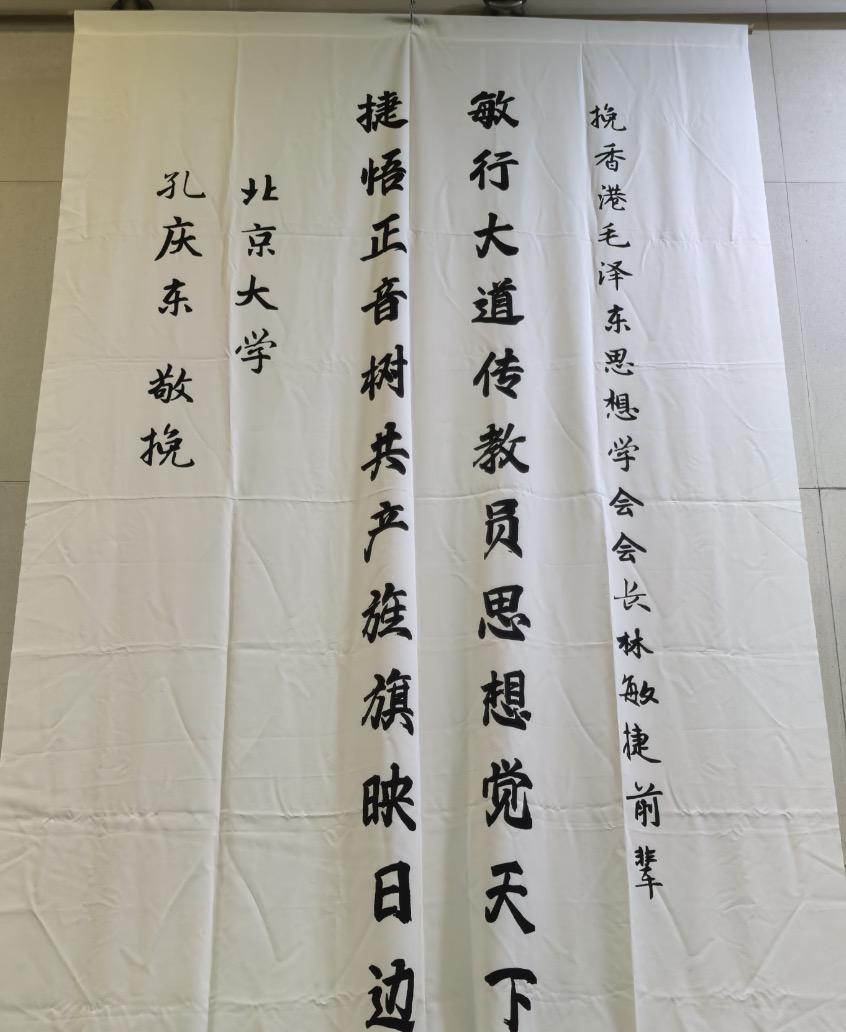 挽香港毛泽东思想学会会长林敏捷前辈
敏行大道传教员思想觉天下
捷悟正音树共产旌旗映日边
北京大学
孔庆东 敬挽